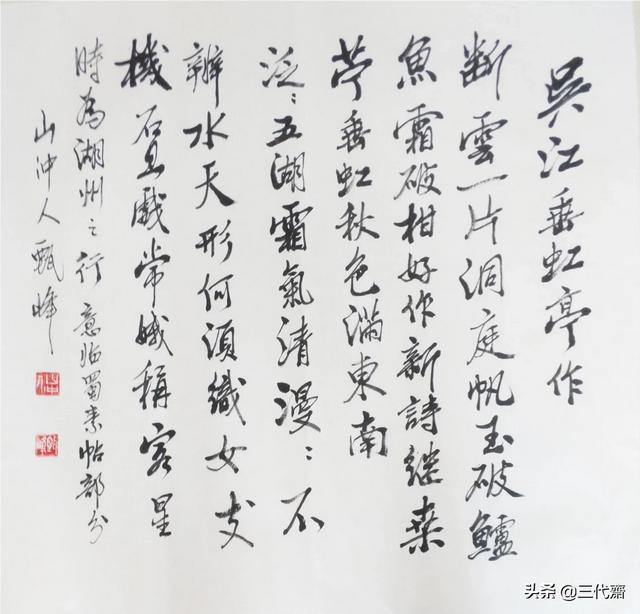 吳江垂虹亭作
斷雲一片洞庭帆玉破鱸
魚霜破柑好作新詩繼桑
苧垂虹秋色滿東南
泛:五湖霜氣清漫:不
辨水天形何須織女支
機石且戲常娥稱客星
時為湖州之行 意臨蜀素帖部分
山沖人甄峰
头条 @三代齋